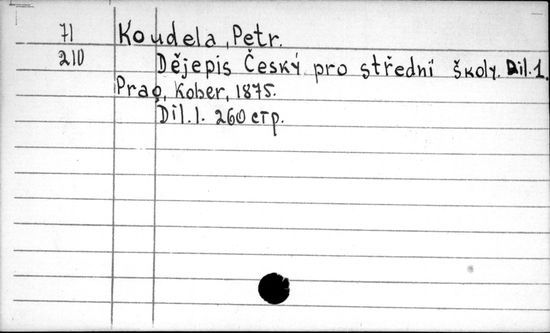 71 Koudela, Petr.
210 Dějepis Český pro střední školy. Díl.1.
Prag, Kober, 1875.
Díl.1. 260 стр.